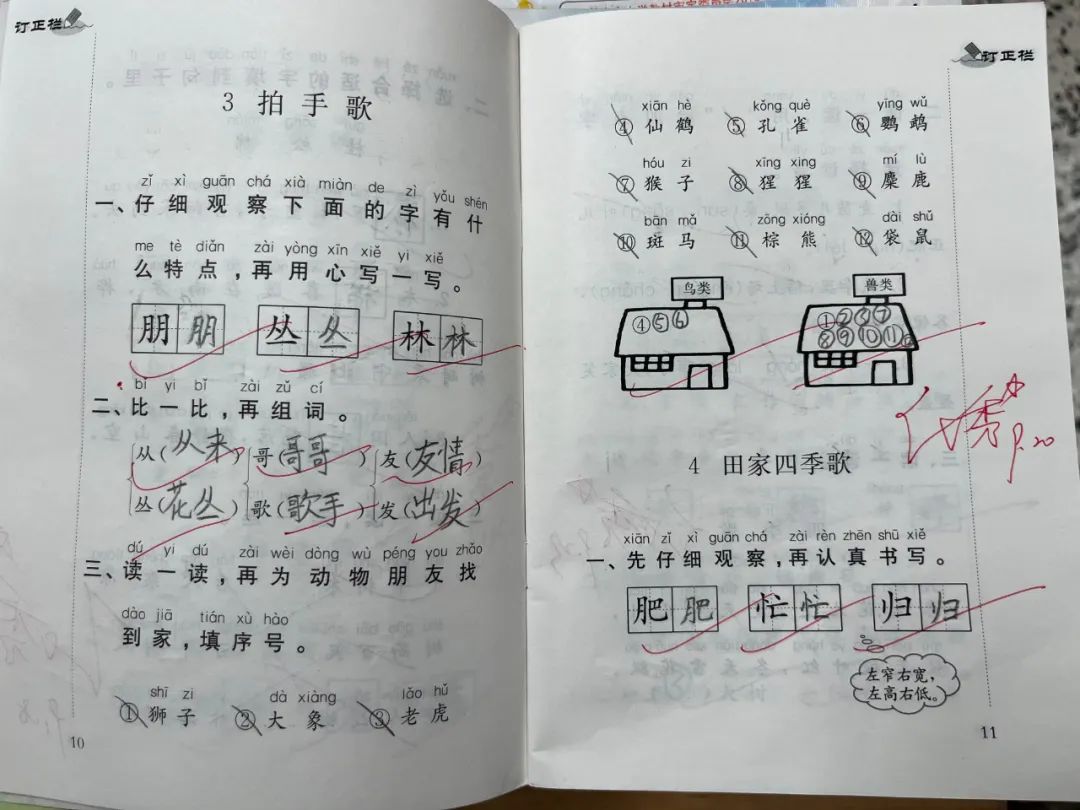 订正栏
3 拍手歌
zǐ xì guān chá xià miàn de zì yǒu shén
一、仔细观察下面的字有什
me tè diǎn zài yòng xīn xiě yi xiě
么特点，再用心写一写。
朋 朋 丛 丛 林 林
bǐ yi bǐ zài zǔ cí
二、比一比，再组词。
从（从来） 哥（哥哥） 友（友情）
丛（花丛） 歌（歌手） 发（出发）
dú yi dú zài wèi dòng wù péng you zhǎo
三、读一读，再为动物朋友找
dào jiā tián xù hào
到家，填序号。
shī zi dà xiàng lǎo hǔ
①狮子 ②大象 ③老虎
10
订正栏
xiān hè kǒng què yīng wǔ
④仙鹤 ⑤孔雀 ⑥鹦鹉
hóu zi xīng xing mí lù
⑦猴子 ⑧猩猩 ⑨麋鹿
bān mǎ zōng xióng dài shǔ
⑩斑马 ⑪棕熊 ⑫袋鼠
鸟类 兽类
④⑤⑥ ①②③⑦
⑧⑨⑩⑪⑫
优秀
9.20
4 田家四季歌
xiān zǐ xì guān chá zài rèn zhēn shū xiě
一、先仔细观察，再认真书写。
肥 肥 忙 忙 归 归
左窄右宽，
左高右低。
11